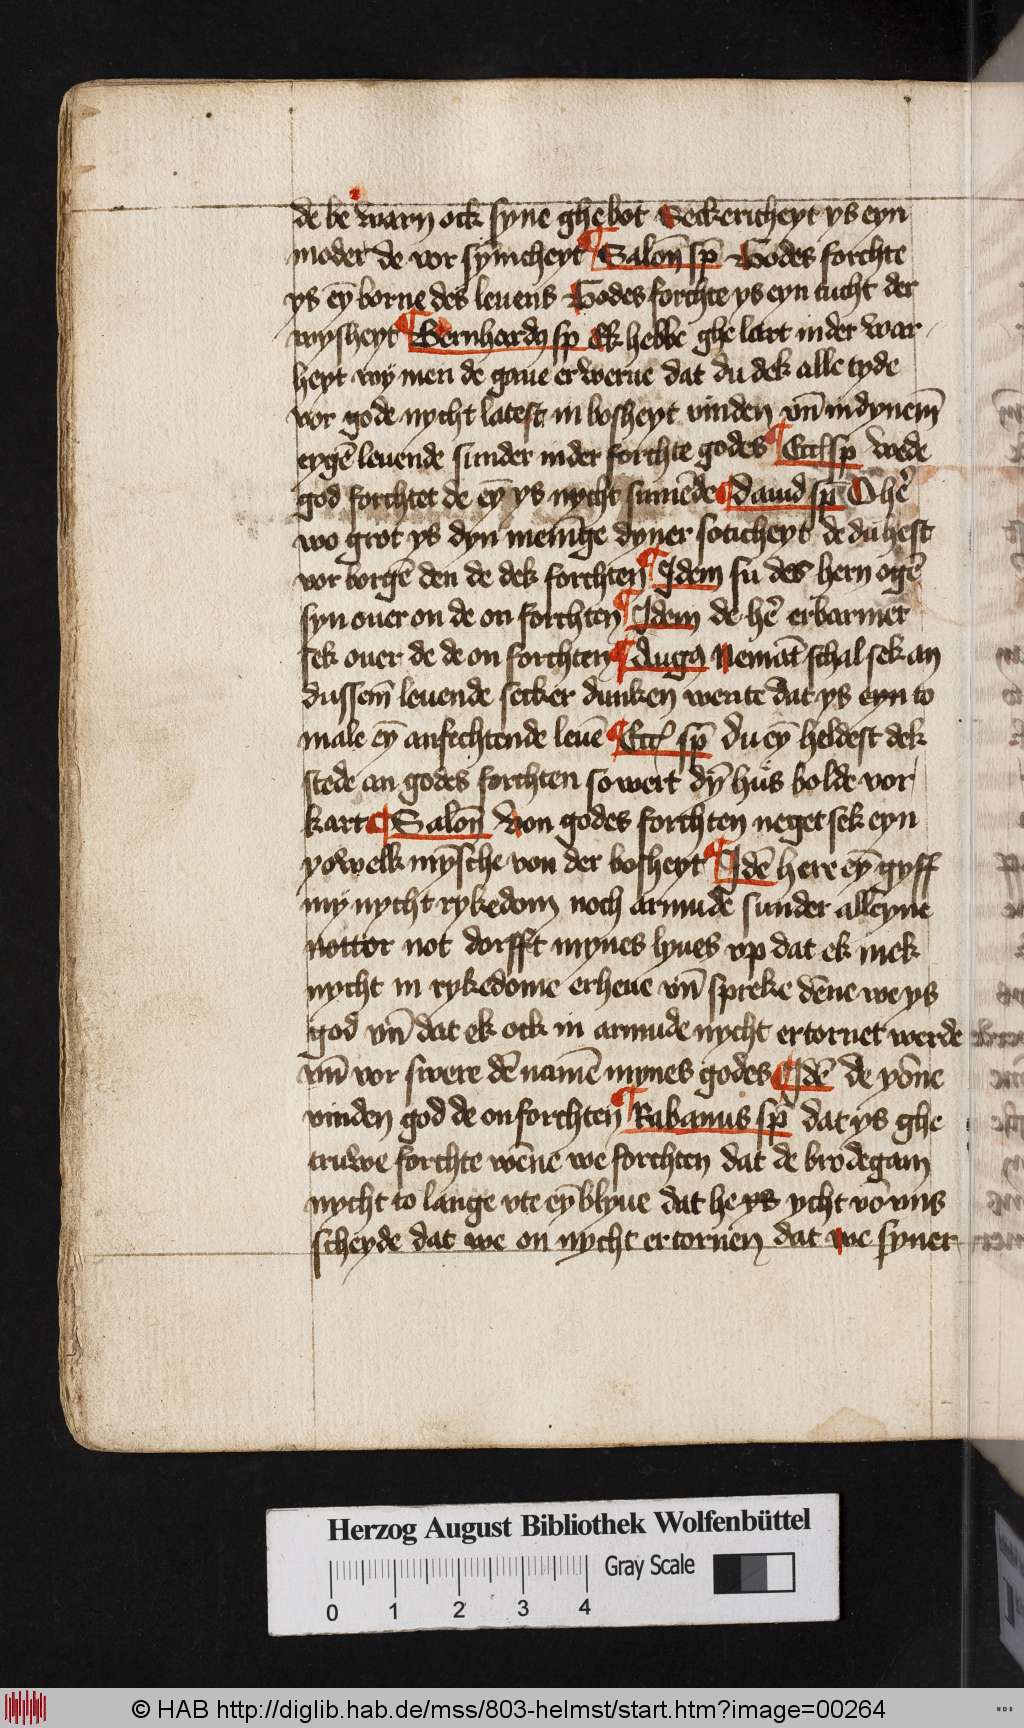 de be warn ock syne ghe bot Seckericheyt ys eyn
moder de vor symicheyt ¶ Salom̄ sp̄ Godes forchte
ys ey̅ borne des leuens Godes forchte ys eyn tucht der
wysheyt ¶ Bernhardꝰ sp Ek hebbe ghe lart in der war
heyt wy men de gaue er werue dat du dek alle tyde
vor gode nycht latest in bosheyt vinden vn̄ in dynem̄
eygē leuende sunder in der forchte godes ¶ Eccl sp we de
god forchtet de ey̅ ys nycht sumēde ¶ dauid sp̄ O he᷑
wo grot ys dyn menīge dyner soticheyt de du hest
vor borgē den de dek forchten ¶ Idem su des hern ogē
syn ouer on de on forchten ¶ Idem de he᷑ erbarmet
sek ouer de de on forchten ¶ Augꝰ Nemāt schal sek an
dussem̄ leuende secker dunken wente dat ys eyn to
male ey̅ anfechtende leuē ¶ Eccl sp̄ du ey̅ heldest dek
stede an godes forchten so wert dy̅ hus bolde vor
kart ¶ Salom̄ Von godes forchten neget sek eyn
yowelk my̅sche von der bosheyt ¶ Idē here ey̅ gyff
my nycht rykedom noch armude sunder alleyne
nottor not dorfft mynes lyues vp dat ek mek
nycht in rykedome erheue vn̄ spreke dēne we ys
god vn̄ dat ek ock in armude nycht ertornet werde
vn̄ vor swere dē namē mynes godes ¶ Idē de yo̅ne
vinden god de on forchten ¶ Rabanus sp̄ dat ys ghe
truwe forchte wēne we forchten dat de brodegam
nycht to lange vte ey̅ blyue dat he ys ycht vō vns
scheyde dat we on nycht ertornen dat we syner
Herzog August Bibliothek Wolfenbüttel
Gray Scale
0 1 2 3 4
© HAB http://diglib.hab.de/mss/803-helmst/start.htm?image=00264